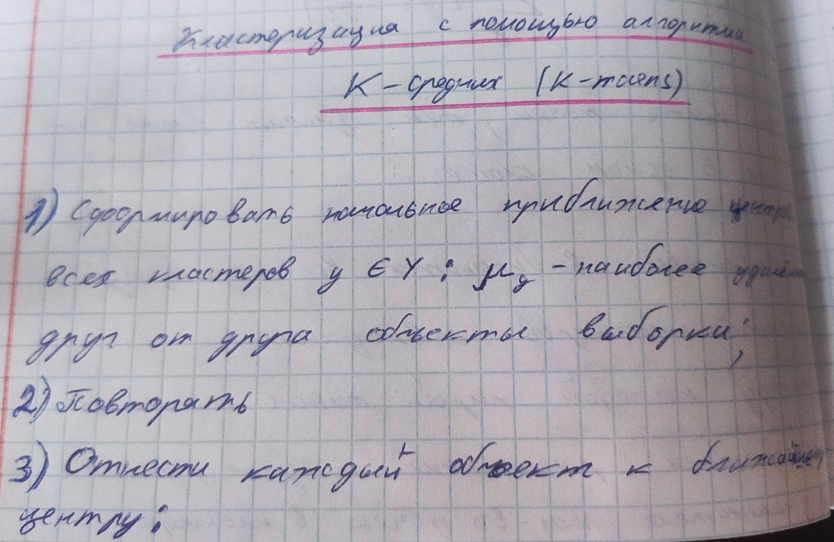 Кластеризация с помощью алгоритма
К-средних (K-means)
1) Сформировать начальное приближение центров
всех кластеров y ∈ Y : μy - наиболее удалён
друг от друга объекты выборки;
2) Повторять
3) Отнести каждый объект к ближайшему
центру: